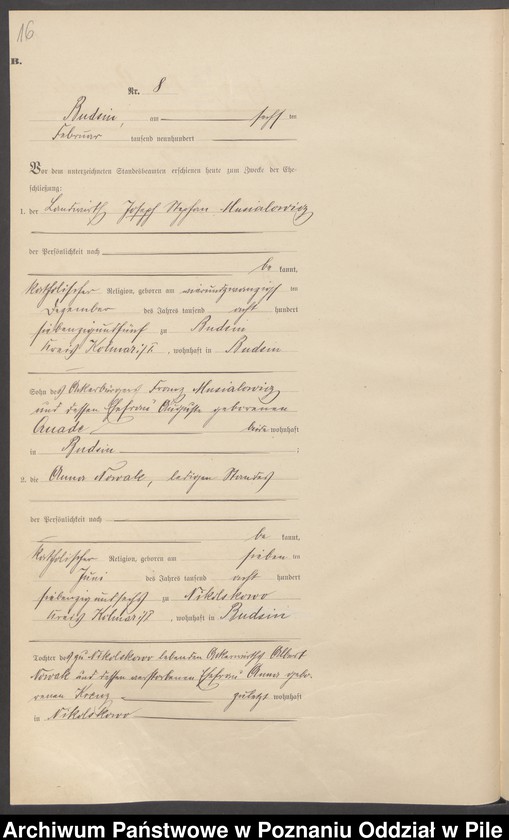 16
B.
Nr. 8
Budsin, am sechs ten
Februar tausend neunhundert
Vor dem unterzeichneten Standesbeamten erschienen heute zum Zwecke der Ehe-
schließung:
1. der Landwirth Joseph Stephan Musialowicz
der Persönlichkeit nach
be kannt,
katholischer Religion, geboren am vierundzwanzigsten
Dezember des Jahres tausend acht hundert
siebenzig und fünf zu Budsin
Kreis Kolmar i/P. , wohnhaft in Budsin
Sohn des Ackerbürgers Franz Musialowicz
und dessen Ehefrau Auguste geborenen
beide wohnhaft
in Budsin ;
2. die Anna Nowak, ledigen Standes
der Persönlichkeit nach
be kannt,
katholischer Religion, geboren am sieben ten
Juni des Jahres tausend acht hundert
siebenzig und sechs zu Nikolskowo
Kreis Kolmar i/P , wohnhaft in Budsin
Tochter des zu Nikolskowo lebenden Ackerwirths Albert
Nowak und dessen verstorbenen Ehefrau Anna gebo-
renen zuletzt wohnhaft
in Nikolskowo
Archiwum Państwowe w Poznaniu Oddział w Pile